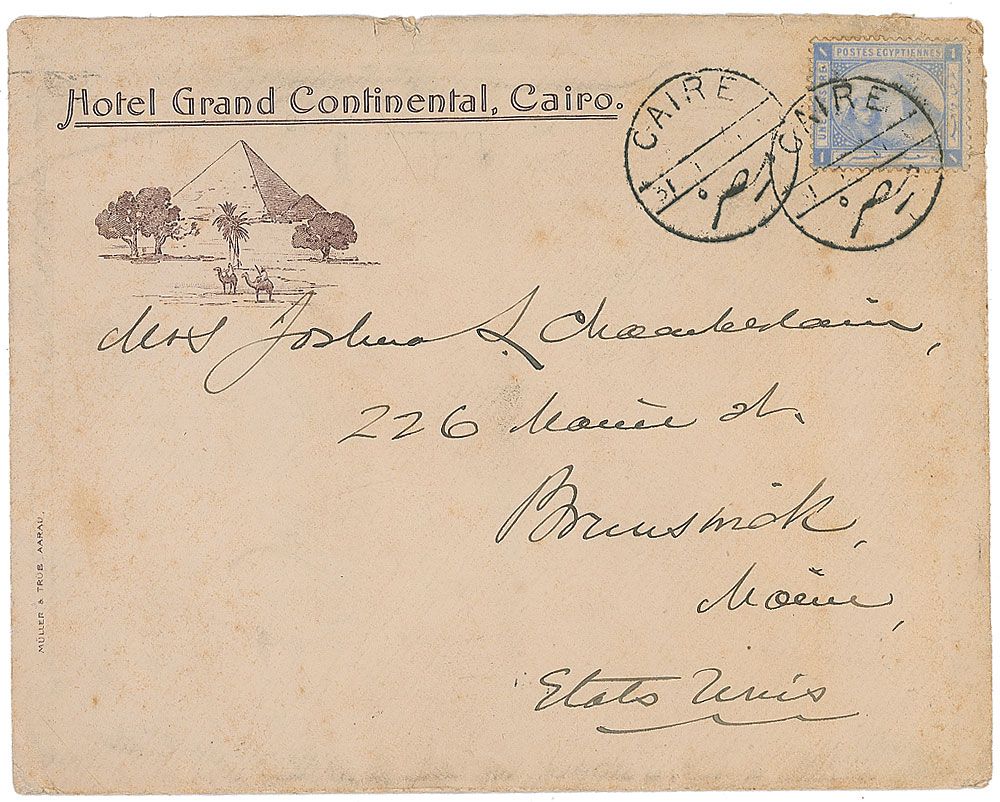 Hotel Grand Continental, Cairo.
POSTES EGYPTIENNES
1 1
1
CAIRE
31 I
CAIRE
Mrs Joshua L Chamberlain,
226 Maine st.
Brunswick,
Maine,
Etats Unis
MÜLLER & TRÜB AARAU.